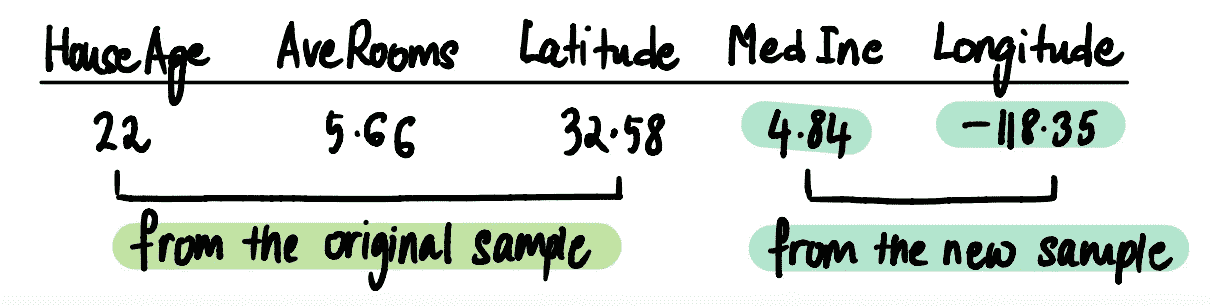 HouseAge AveRooms Latitude MedInc Longitude
22 5.66 32.58 4.84 -118.35
from the original sample from the new sample